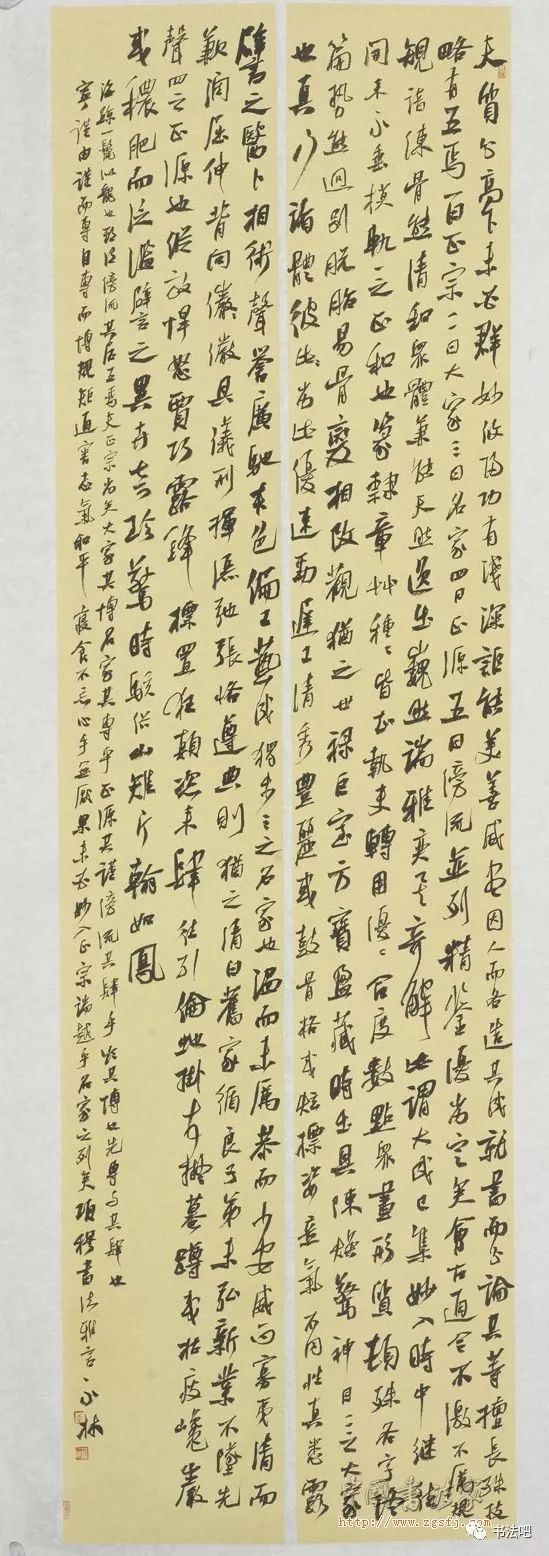 夫質分高下未必群妙攸歸功有淺深詎能美善咸盡因人而各造其成就書而分論其等擅長殊技
略有五焉一曰正宗二曰大家三曰名家四曰正源五曰傍流並列精鑒優劣定矣會古通今不激不厲規
矩諳練骨態清和眾體兼能天然逸出巍然端雅奕矣奇解此謂大成已集妙入時中繼往
開來永垂模軌之正宗也篆隸章草種種皆知執使轉用優優合度數點眾畫形質頓殊各字終
篇勢態迥別脫胎易骨變相改觀猶之世祿巨室萬寶盈藏時出具陳煥驚神目二之大家
也真行諸體彼劣此優速勁遲工清秀豐麗或鼓骨格或炫標姿意氣不同性真悉露
譬之醫卜相術聲譽廣馳本色偏工藝成獨步三之名家也溫而未厲恭而少安威而寡夷清而
歉潤屈伸背向儼具儀刑揮灑弛張恪遵典則猶之清白舊家循良子弟未弘新業不墜先
聲四之正源也縱放悍怒賈巧露鋒標置狂顛恣來肆往引倫蛇掛或擬蟇蹲或枯瘦巉巖
或穠肥而泛濫譬之異卉奇珍驚時駭俗山雉片翰如鳳
海鯨一鬣似龍也斯謂傍流其居五焉夫正宗尚矣大家其博名家其專乎正源其謹傍流其肆乎欲其博也先專與其肆也
寧謹由謹而專自專而博規矩通審志氣和平寢食不忘心手無厭果未必妙入正宗端越乎名家之列矣項穆書法雅言林
http://www.zgsfj.com
书法吧